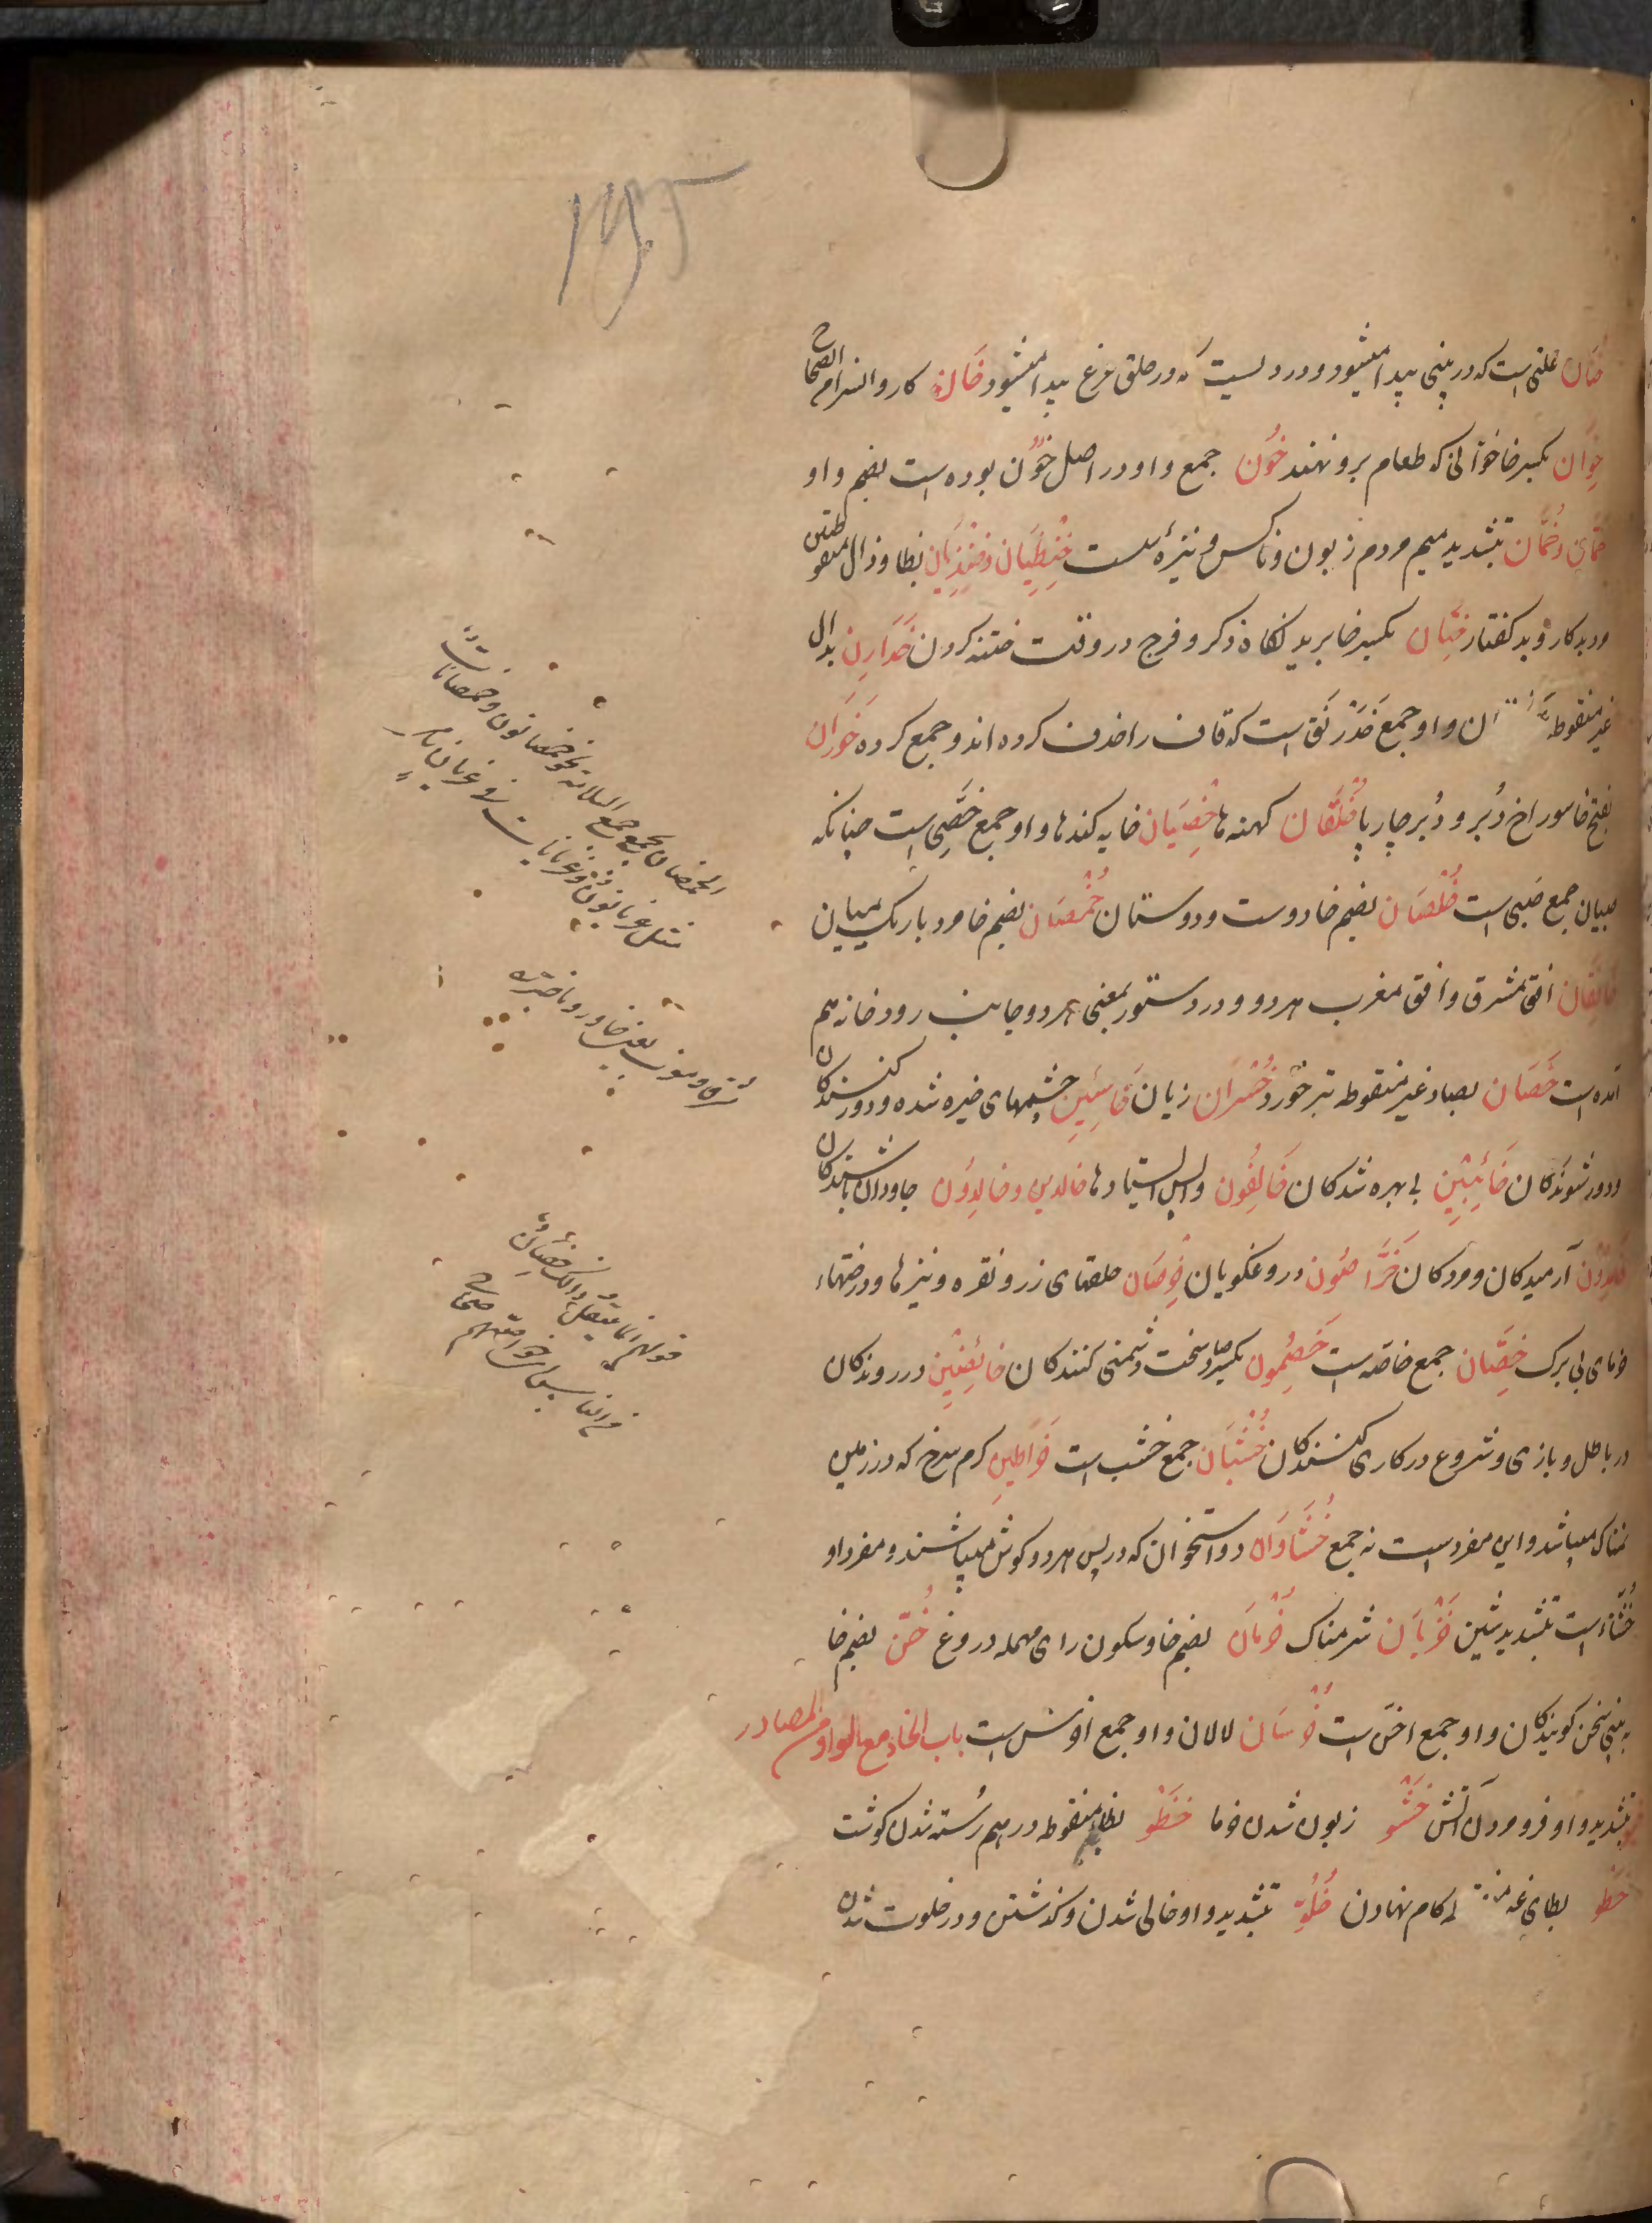 ۱۹۵
خُنَان علتی است که در بینی پیدا میشود و دردیست که در حلق مرغ پیدا میشود خَان کاروانسرا م الصحاح
خِوَان بکسر خا خوانی که طعام برو نهند خُون جمع و او در اصل خُوُن بوده است بضم واو
خمان بتشدید میم مردم زبون و ناکس و نیزهٔ سست خِنظِیَان و خِنذِیَان بظا و ذال منقوطتین
بدکار و بد گفتار خِتَان بکسر خا بریدنگاه ذکر و فرج در وقت ختنه کردن خَدَارِن بدال
غیر منقوطه و او جمع خَدَرْنَق است که قاف را حذف کرده اند و جمع کرده خَوَران
بفتح خا سوراخ دُبر و دُبر چارپا خُلْقَان کهنه ها خِصْیَان خایه کندها و او جمع خَصِّی است چنانکه
صبیان جمع صَبی است خُلْصَان بضم خا دوست و دوستان خُمْصَان بضم خا مرد باریک میان
خَافِقَان افق مشرق و افق مغرب هر دو و در دستور بمعنی هر دو جانب رودخانه هم
آمده است خَصَان بصاد غیر منقوطه تبر خورد خُسْران زیان خَاسِئِین چشمهای خیره شده و دور کنندگان
و دور شوندگان خَائِبِین بی بهره شدگان خَالِفُون واپس ایستادها خالدین و خالدون جاودان باشندگان
خَامِدُون آرمیدگان و مردگان خَرَّاصُون دروغگویان خُرْصَان حلقهای زر و نقره و نیزها و درختهاء
خرمای بی برگ خِصَّان جمع خاصّه است خَصِمُون بکسر صاد سخت دشمنی کنندگان خائِضِین در روندگان
در باطل و بازی و شروع در کاری کنندگان خُشْبَان جمع خشب است خَراطِین کرم سرخ که در زمین
نمناک میباشد و این مفردست نه جمع خُشَّاوَان دو استخوان که در پس هر دو گوش میباشند و مفرد او
خُشَّاء است بتشدید شین خَزْیَان شرمناک خُرْمَان بضم خا و سکون رای مهمله دروغ خُنّ بضم خا
به بینی سخن گویندگان و او جمع اخنّ است خُرْسَان لالان و او جمع اخرس است باب الخاء مع الواو من المصادر
بتشدید واو فرو مردن آتش خَشْو زبون شدن خرما خَظْو بظاء منقوطه در هم رُسته شدن گوشت
خَطو بطای گام نهادن خُلُوّ بتشدید واو خالی شدن و گذشتن و در خلوت شدن
الخمصان یجمع جمع السلامة نحو خمصانون و خمصانات
مثل عریانون و عریانات
مشرق و مغرب یعنی خاور و باختر